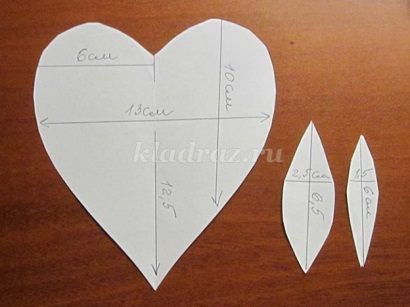 6см
10см
13см
kladraz.ru
12,5
2,5см
6,5
1,5
6см